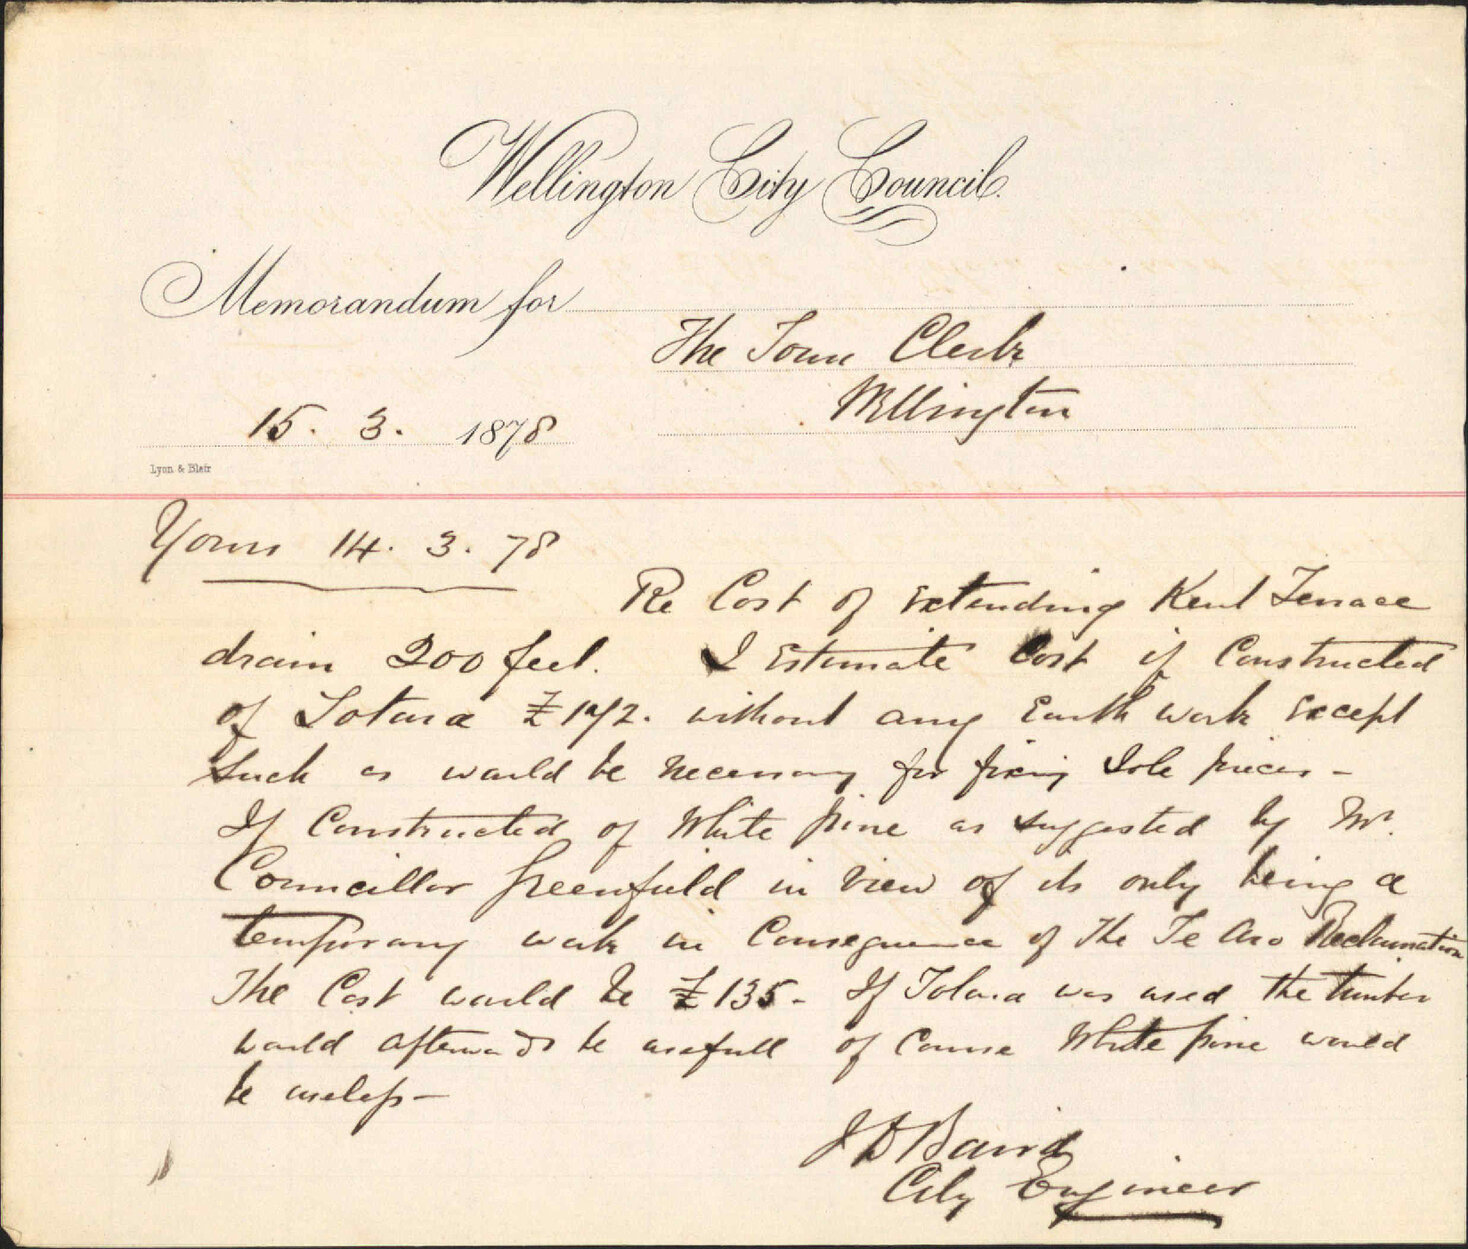 Wellington City Council.
Memorandum for
The Town Clerk
Wellington
15. 3. 1878
Lyon & Blair
Yours 14. 3. 78
Re Cost of extending Kent Terrace
drain 200 feet. I Estimate Cost if Constructed
of Totara £172. without any Earth work except
such as would be necessary for fixing Sole pieces -
If Constructed of White pine as suggested by Mr.
Councillor Greenfield in view of its only being a
temporary work in Consequence of the Te Aro Reclamation
The Cost would be £135 - If Totara was used the timber
would afterwards be usefull of Course White pine would
be useless -
J D Baird
City Engineer